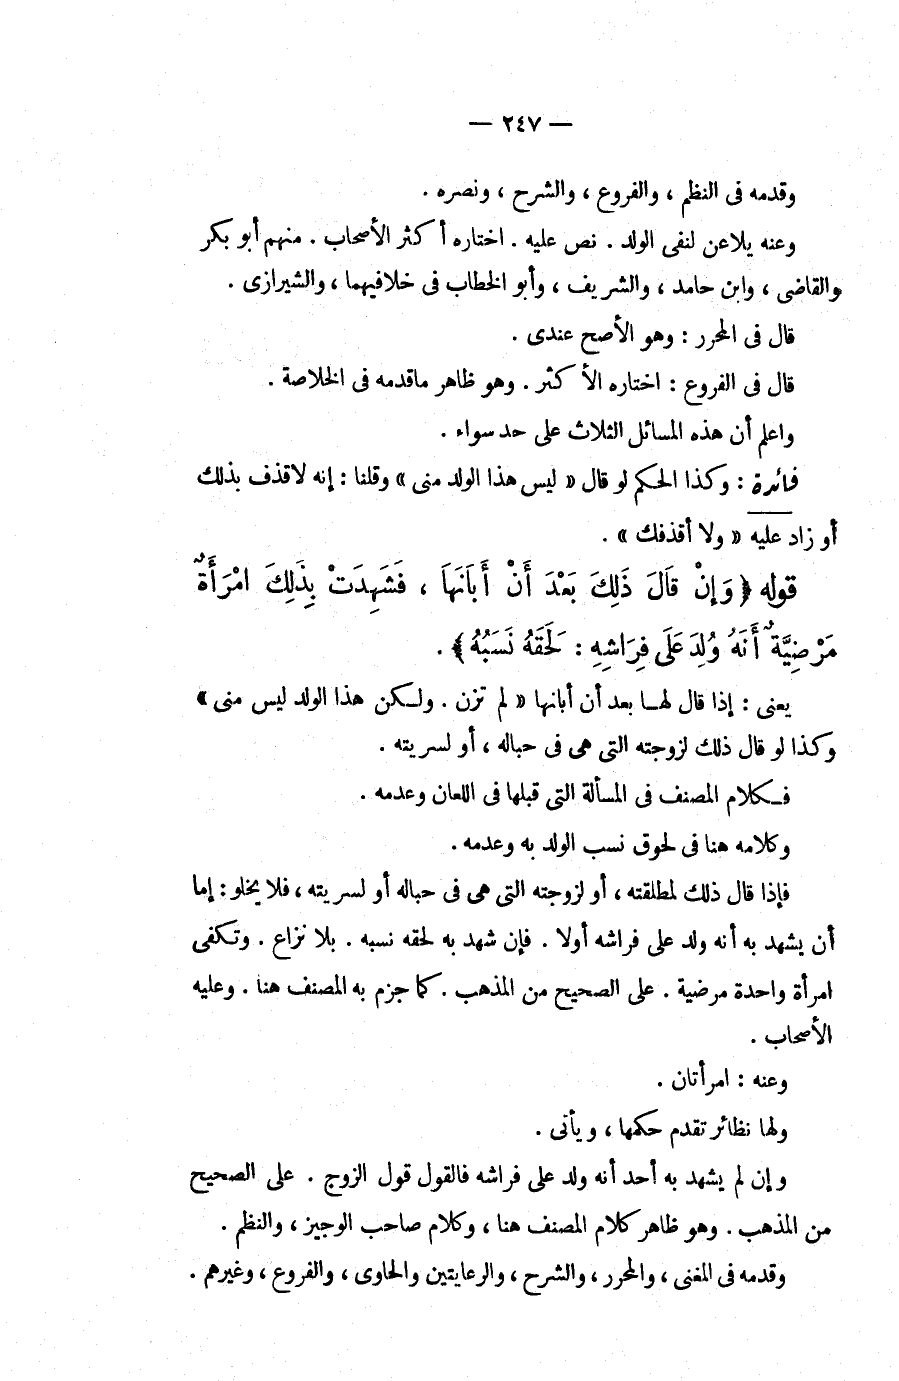 — ٢٤٧ —
وقدمه فى النظم ، والفروع ، والشرح ، ونصره .
وعنه يلاعن لنفى الولد . نص عليه . اختاره أكثر الأصحاب . منهم أبو بكر
والقاضى ، وابن حامد ، والشريف ، وأبو الخطاب فى خلافيهما ، والشيرازى .
قال فى المحرر : وهو الأصح عندى .
قال فى الفروع : اختاره الأكثر . وهو ظاهر ماقدمه فى الخلاصة .
واعلم أن هذه المسائل الثلاث على حد سواء .
فائدة : وكذا الحكم لو قال « ليس هذا الولد منى » وقلنا : إنه لاقذف بذلك
أو زاد عليه « ولا أقذفك » .
قوله ﴿ وَإِنْ قَالَ ذَلِكَ بَعْدَ أَنْ أَبَانَهَا ، فَشَهِدَتْ بِذَلِكَ امْرَأَةٌ
مَرْضِيَّةٌ أَنَهُ وُلِدَ عَلَى فِرَاشِهِ : لَحَقَهُ نَسَبُهُ ﴾ .
يعنى : إذا قال لهـا بعد أن أبانها « لم تزن . ولـكن هذا الولد ليس منى »
وكذا لو قال ذلك لزوجته التى هى فى حباله ، أو لسريته .
فـكلام المصنف فى المسألة التى قبلها فى اللعان وعدمه .
وكلامه هنا فى لحوق نسب الولد به وعدمه .
فإذا قال ذلك لمطلقته ، أو لزوجته التى هى فى حباله أو لسريته ، فلا يخلو : إما
أن يشهد به أنه ولد على فراشه أولا . فإن شهد به لحقه نسبه . بلا نزاع . وتكفى
امرأة واحدة مرضية . على الصحيح من المذهب . كما جزم به المصنف هنا . وعليه
الأصحاب .
وعنه : امرأتان .
ولها نظائر تقدم حكمها ، ويأتى .
وإن لم يشهد به أحد أنه ولد على فراشه فالقول قول الزوج . على الصحيح
من المذهب . وهو ظاهر كلام المصنف هنا ، وكلام صاحب الوجيز ، والنظم .
وقدمه فى المغنى ، والمحرر ، والشرح ، والرعايتين والحاوى ، والفروع ، وغيرهم .